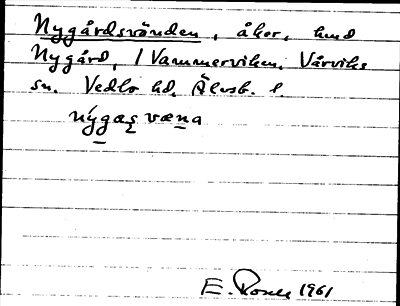 Nygårdsvänden, åker, hmd
Nygård, 1 Vammerviken, Vårviks
sn. Vedbo hd, Älvsb. l.
nýgæs væna
E. 1961